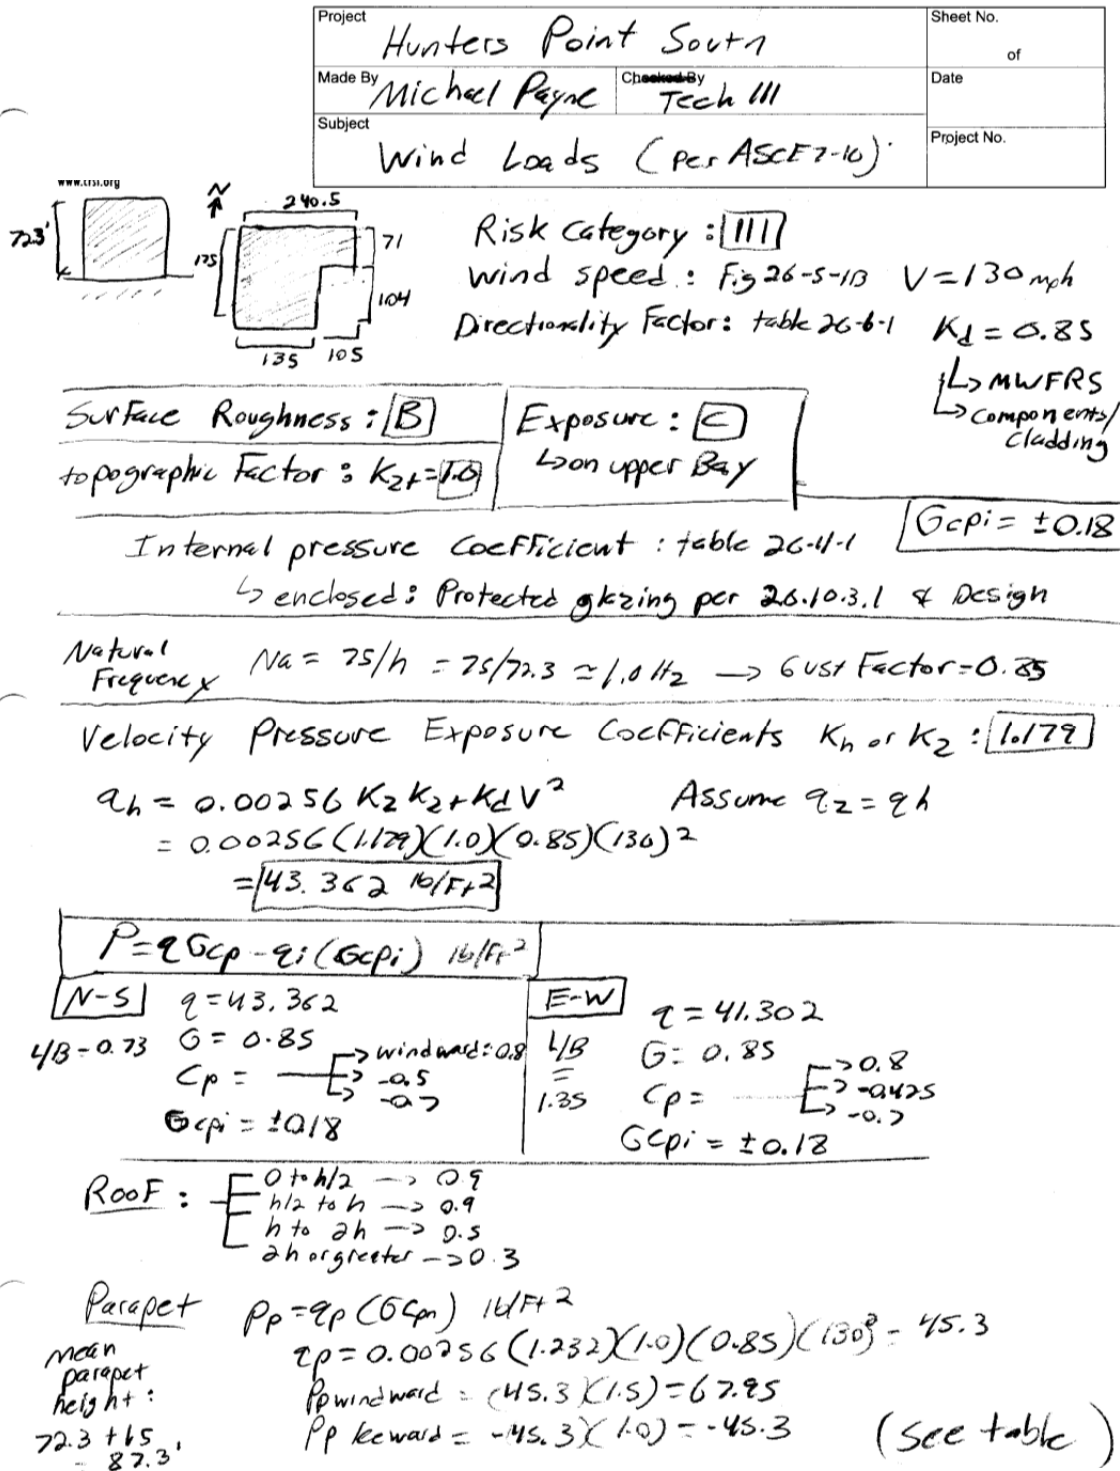 Project
Hunters Point South
Sheet No.
of
Made By Michael Payne
Checked By Tech III
Date
Subject
Wind Loads (per ASCE7-10)
Project No.
www.crsi.org
723'
N
240.5
175
71
104
135 105
Risk Category : III
Wind speed : Fig 26-5-1B V=130 mph
Directionality Factor: table 26-6-1 Kd = 0.85
↳ MWFRS
↳ components/
cladding
Surface Roughness : B
topographic Factor : Kzt = 1.0
Exposure : C
↳ on upper Bay
Internal pressure Coefficient : table 26-11-1 Gcpi = ±0.18
↳ enclosed: Protected glazing per 26.10.3.1 & Design
Natural
Frequency Na = 75/h = 75/72.3 ≃ 1.0 Hz → Gust Factor = 0.85
Velocity Pressure Exposure Coefficients Kh or Kz : 1.179
qh = 0.00256 Kz Kzt Kd V² Assume qz = qh
= 0.00256 (1.179)(1.0)(0.85)(130)²
= 43.362 lb/Ft²
P = qGcp - qi(Gcpi) lb/Ft²
N-S q = 43.362
L/B = 0.73 G = 0.85
Cp = → windward: 0.8
→ -0.5
→ -0.7
Gcpi = ±0.18
E-W q = 41.302
L/B = 1.35
G = 0.85
Cp = → 0.8
→ -0.425
→ -0.7
Gcpi = ±0.18
Roof : 0 to h/2 → 0.9
h/2 to h → 0.9
h to 2h → 0.5
2h or greater → 0.3
Parapet Pp = qp (GCpn) lb/Ft²
mean
parapet
height :
72.3 + 15
= 87.3'
qp = 0.00256 (1.232)(1.0)(0.85)(130)² = 45.3
Pp windward = (45.3)(1.5) = 67.95
Pp leeward = -45.3)(1.0) = -45.3
(see table)